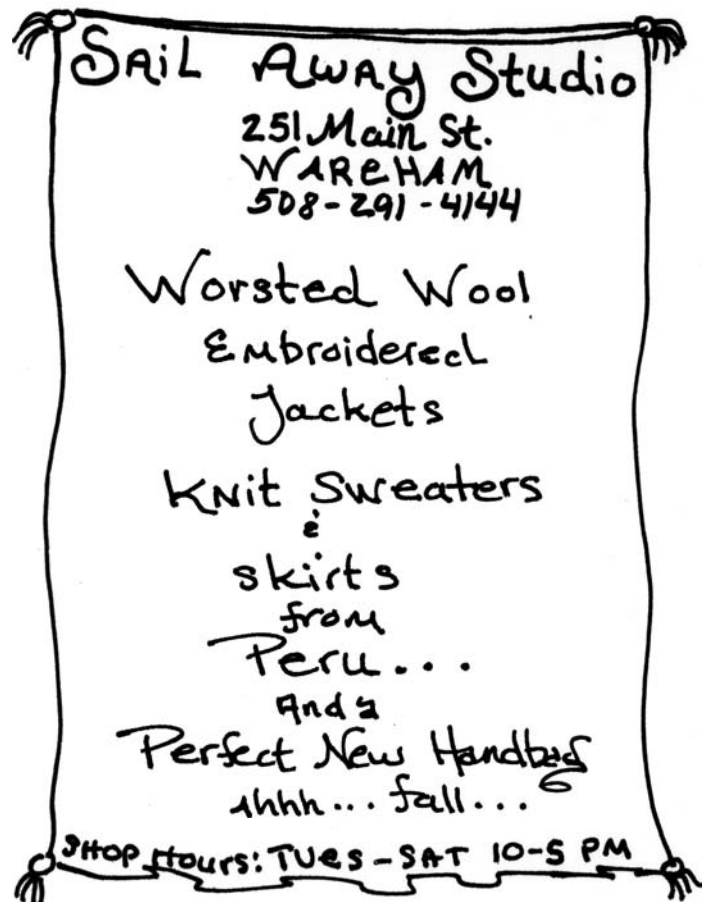 SAiL AWAy Studio
251 Main St.
WAReHAM
508-291-4144
Worsted Wool
Embroidered
Jackets
KNit Sweaters
&
skirts
from
Peru...
And a
Perfect New Handbag
Ahhh... fall...
SHOP Hours: TUes - SAT 10-5 PM